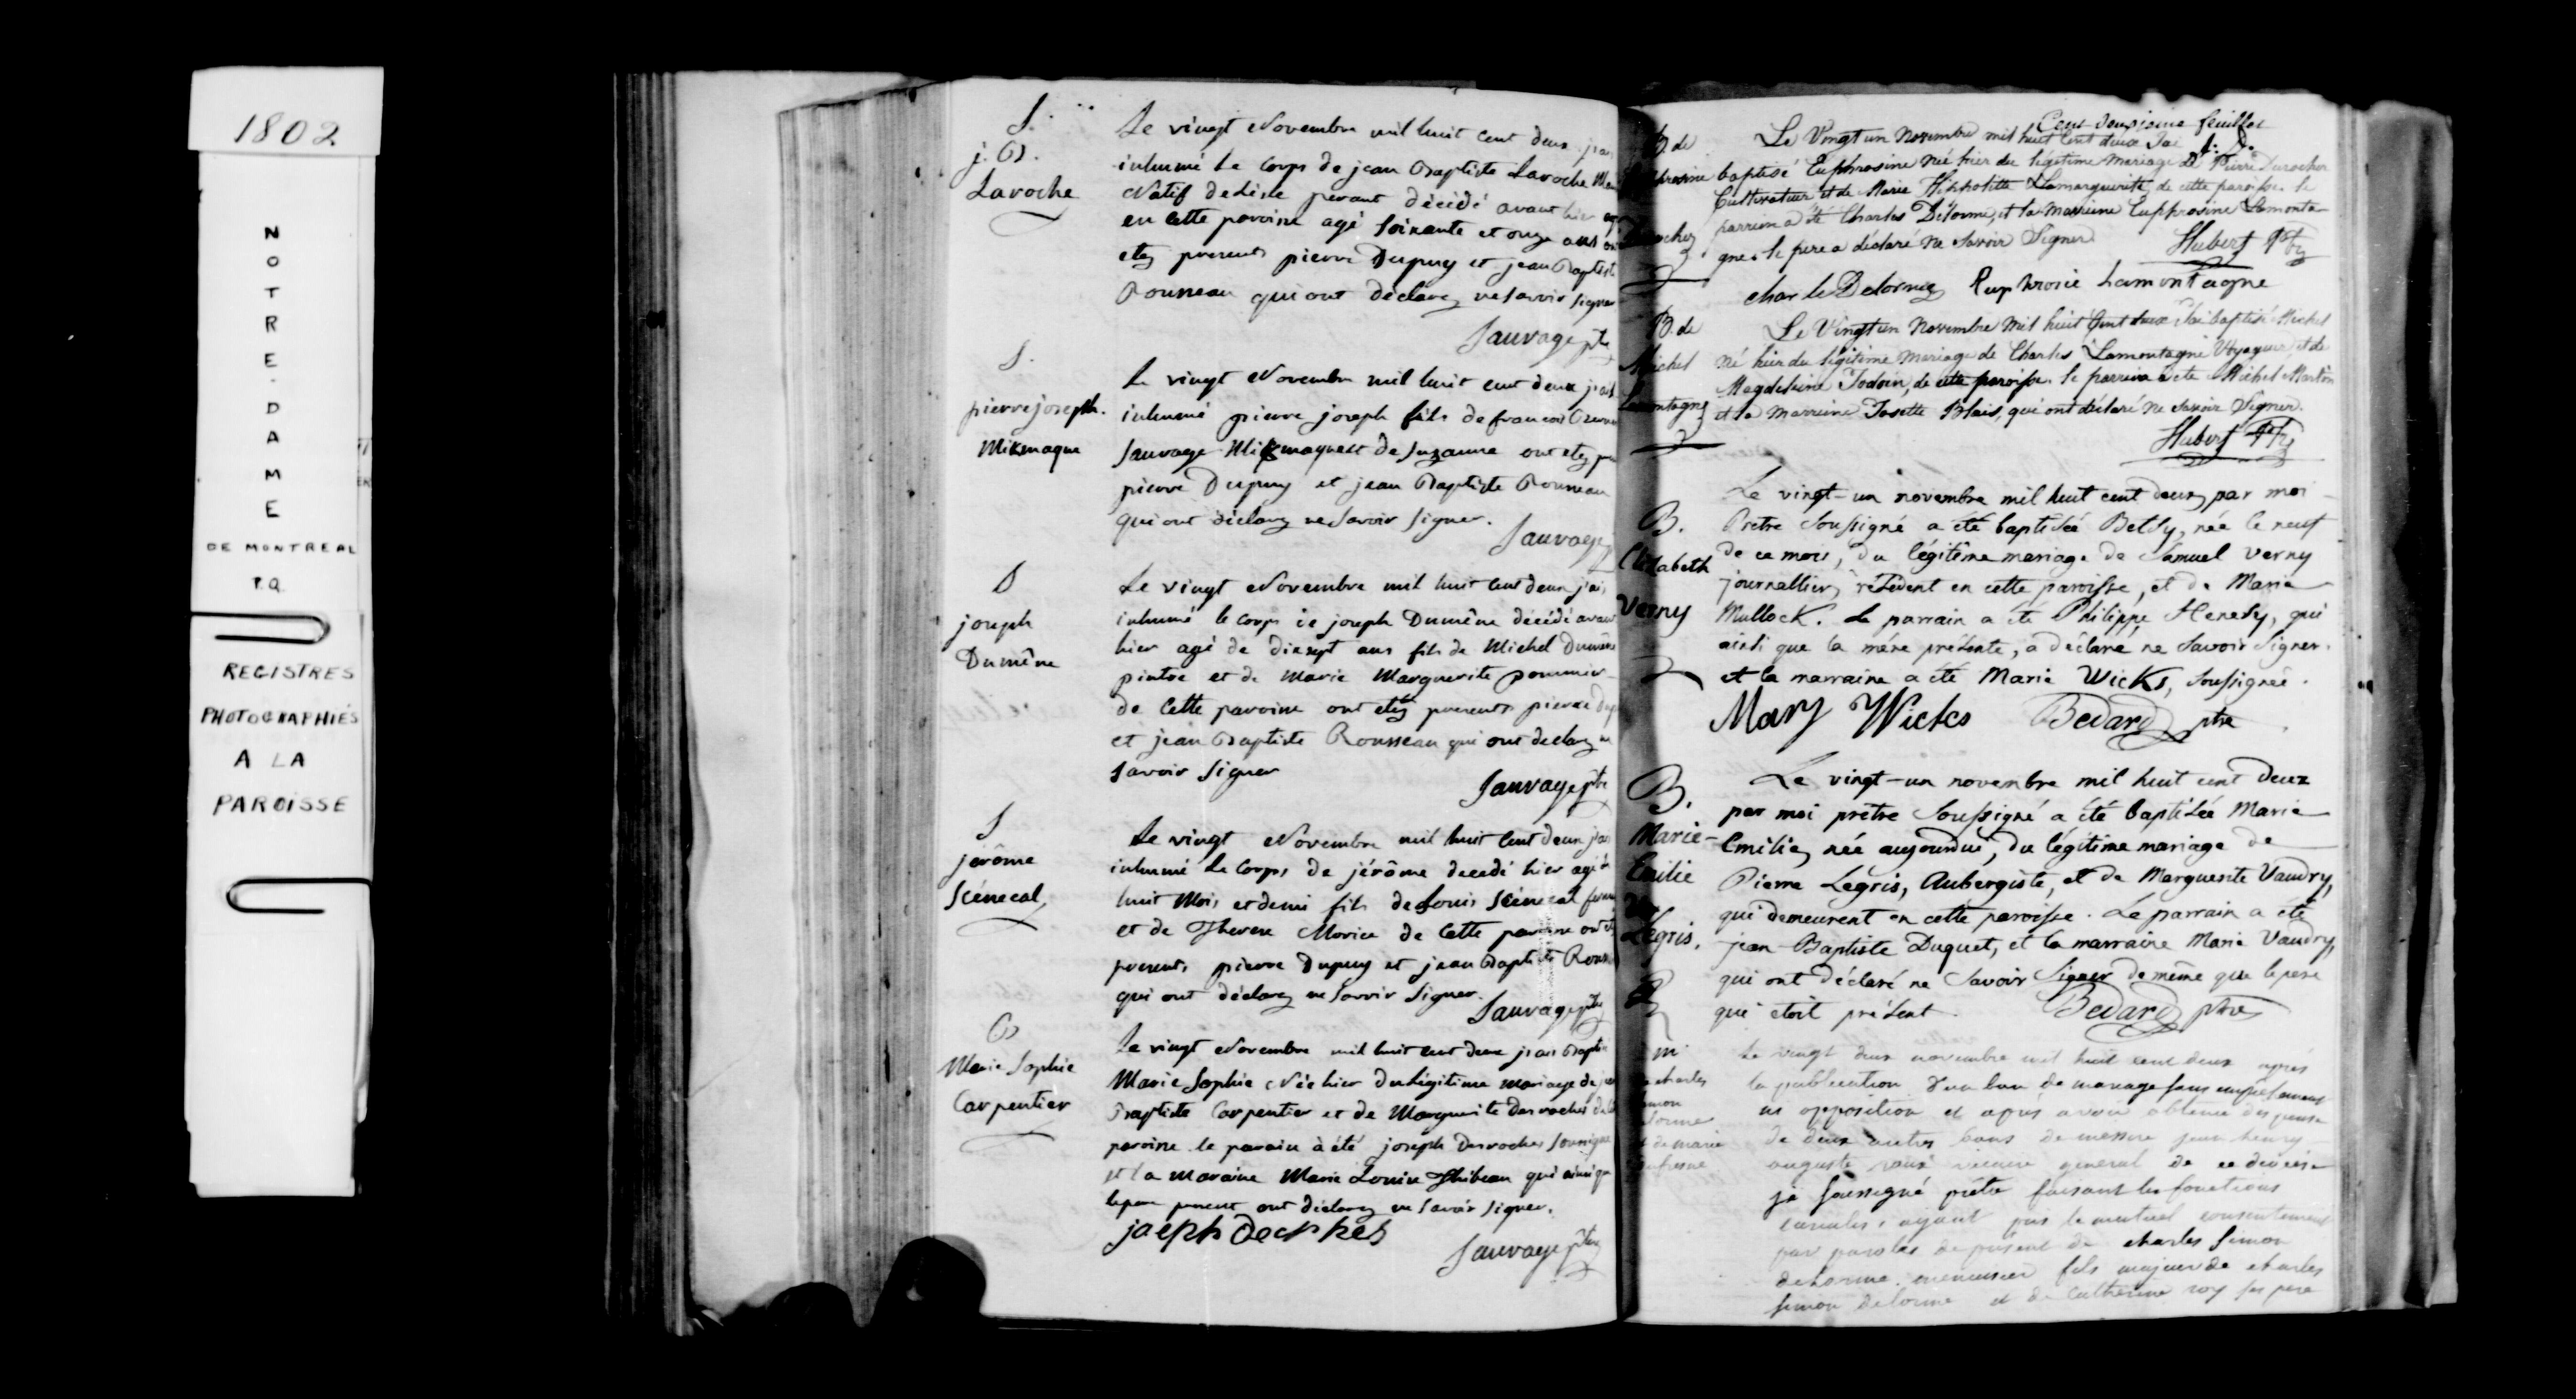 1802
NOTRE-DAME
DE MONTREAL
P.Q.
REGISTRES
PHOTOGRAPHIÉS
A LA
PAROISSE
S.
j. B.
Laroche
Le vingt Novembre mil huit cent deux j'ai
inhumé le Corps de jean Baptiste Laroche
Natif de décédé avant hier
en cette paroisse agé soixante et onze ans
etez presents pierre Dupuy et jean Baptiste
Rousseau qui ont déclarez ne savoir signer
Sauvage ptre
S.
pierre joseph.
Mikmaque
Le vingt Novembre mil huit cent deux j'ai
inhumé pierre joseph fils de francois
Sauvage Mikmaque et de Suzanne ont etez
pierre Dupuy et jean Baptiste Rousseau
qui ont déclarez ne Savoir signer.
Sauvage
S
joseph
Dumême
Le vingt Novembre mil huit cent deux j'ai
inhumé le Corps de joseph Dumême décédé avant
hier agé de dixsept ans fils de Michel Dumême
pintre et de Marie Marguerite pommier
de Cette paroisse ont etez presents pierre
et jean Baptiste Rousseau qui ont declarez ne
savoir signer
Sauvage ptre
S
jérôme
Scénecal
Le vingt Novembre mil huit cent deux j'ai
inhumé Le Corps de jérôme decedé hier agé de
huit Mois et demi fils de Louis Scénecal
et de Therese Morice de Cette paroisse ont
presents pierre Dupuy et jean Baptiste
qui ont déclarez ne Savoir signer.
Sauvage ptre
B
Marie Sophie
Carpentier
Le vingt Novembre mil huit cent deux j'ai Baptisé
Marie Sophie Née hier du Légitime mariage de
Baptiste Carpentier et de Marguerite Desroches
paroisse le parain à été joseph Desroches soussigné
et la maraine Marie Louise Thibeau qui ainsi que
le pere present ont déclarez ne savoir signer.
Sauvage ptre
Cent douzieme feuillet
B. de
Le Vingt un Novembre mil huit Cent deux J'ai
baptisé Euphrosine née hier du légitime mariage de Pierre Durocher
Cultivateur et de Marie Hippolitte Lamarguerite, de cette paroisse. le
parrain a été Charles Delorme, et la Marreine Euphrosine Lamonta-
gne. le pere a déclaré ne Savoir Signer
Hubert Ptre
Lamontagne
B. de
Michel
Lamontagne
Le Vingt un Novembre Mil huit Cent deux J'ai baptisé Michel
né hier du légitime mariage de Charles Lamontagne Voyageur, et de
Magdeleine Jodoin, de cette paroisse. le parrain a été Michel Martin
et la Marreine Josette Blais, qui ont déclaré ne Savoir Signer.
Hubert Ptre
B.
Elizabeth
Verny
Le vingt-un novembre mil huit cent deux, par moi
Prêtre Soussigné a été baptisée Betsy, née le neuf
de ce mois, du légitime mariage de Samuel Verny
journallier, résident en cette paroisse, et de Marie
Mullock. Le parrain a été Philippe Henesy, qui
ainsi que la mére présente, a déclaré ne Savoir Signer.
et la marraine a été Marie Wicks, Soussignée.
Mary Wicks Bedard ptre
B.
Marie-
Emilie
Legris.
Le vingt-un novembre mil huit cent deux
par moi prêtre Soussigné a été baptisée Marie
Emilie, née aujourdui, du légitime mariage de
Pierre Legris, Aubergiste, et de Marguerite Vaudry,
qui demeurent en cette paroisse. Le parrain a été
jean-Baptiste Duquet, et la marraine Marie Vaudry,
qui ont déclaré ne Savoir Signer de même que le pere
qui étoit présent.
Bedard ptre
m
charles
et de marie
Le vingt deux novembre mil huit cent deux après
la publication d'un ban de mariage sans empêchement
ni opposition et après avoir obtenu dispense
de deux autres bans de messire jean henry
auguste roux vicaire general de ce diocése
je soussigné prêtre faisant les fonctions
curiales, ayant pris le mutuel consentement
par paroles de présent de charles simon
delorme menuisier fils majeur de charles
simon delorme et de Catherine roy ses pere